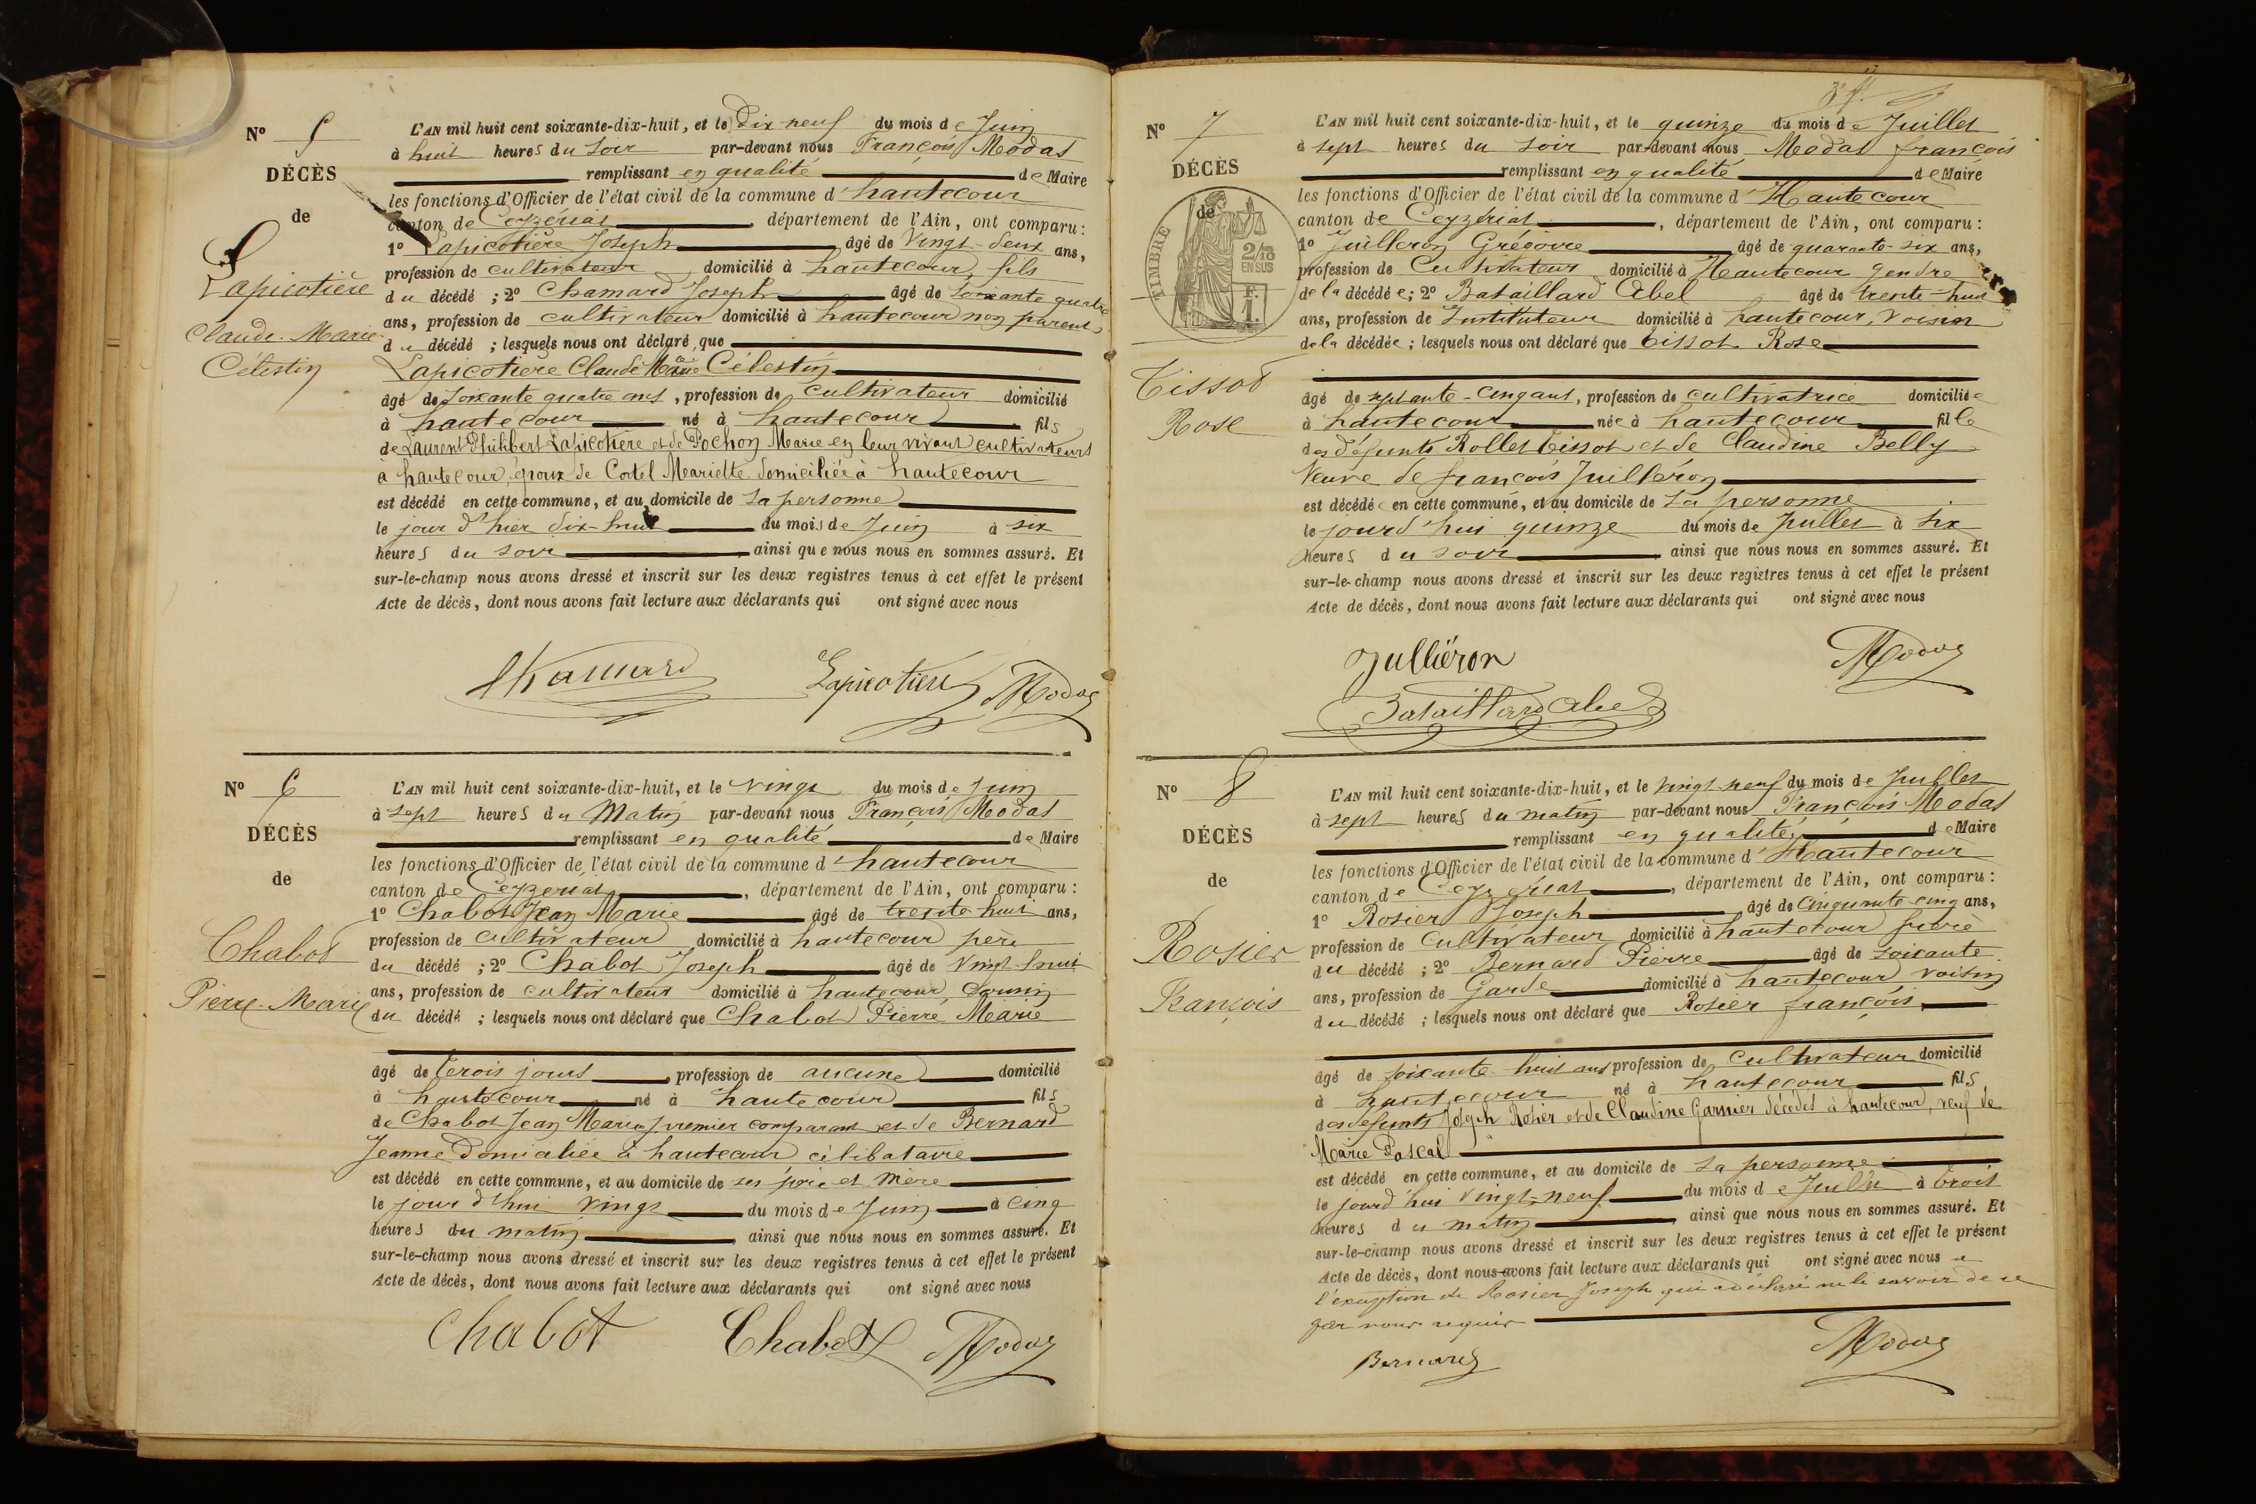 N° 5
DÉCÈS
de
Lapicotière
Claude-Marie
Célestin
L'AN mil huit cent soixante-dix-huit, et le Dix neuf du mois de Juin
à huit heures du soir par-devant nous François Modas
remplissant en qualité de Maire
les fonctions d'Officier de l'état civil de la commune d'hautecour
canton de Ceyzériat département de l'Ain, ont comparu :
1° Lapicotière Joseph âgé de Vingt-deux ans,
profession de cultivateur domicilié à hautecour, fils
du décédé ; 2° Chamard Joseph âgé de soixante quatre
ans, profession de cultivateur domicilié à hautecour non parent
du décédé ; lesquels nous ont déclaré que
Lapicotière Claude Marie Célestin
âgé de soixante quatre ans, profession de cultivateur domicilié
à hautecour né à hautecour fils
de Laurent Philibert Lapicotière et de Pochon Marie en leur vivant cultivateurs
à hautecour, époux de Cortel Mariette domiciliée à hautecour
est décédé en cette commune, et au domicile de sa personne
le jour d'hier dix-huit du mois de Juin à six
heures du soir ainsi que nous nous en sommes assuré. Et
sur-le-champ nous avons dressé et inscrit sur les deux registres tenus à cet effet le présent
Acte de décès, dont nous avons fait lecture aux déclarants qui ont signé avec nous
Chamard Lapicotière Modas
N° 6
DÉCÈS
de
Chabot
Pierre-Marie
L'AN mil huit cent soixante-dix-huit, et le vingt du mois de Juin
à sept heures du Matin par-devant nous François Modas
remplissant en qualité de Maire
les fonctions d'Officier de l'état civil de la commune d'hautecour
canton de Ceyzériat, département de l'Ain, ont comparu :
1° Chabot Jean Marie âgé de trente huit ans,
profession de cultivateur domicilié à hautecour père
du décédé ; 2° Chabot Joseph âgé de Vingt-huit
ans, profession de cultivateur domicilié à hautecour, Cousin
du décédé ; lesquels nous ont déclaré que Chabot Pierre Marie
âgé de trois jours, profession de aucune domicilié
à hautecour né à hautecour fils
de Chabot Jean Marie premier comparant et de Bernard
Jeanne Domiciliée à hautecour célibataire
est décédé en cette commune, et au domicile de ses père et mère
le jour d'hui vingt du mois de Juin à cinq
heures du matin ainsi que nous nous en sommes assuré. Et
sur-le-champ nous avons dressé et inscrit sur les deux registres tenus à cet effet le présent
Acte de décès, dont nous avons fait lecture aux déclarants qui ont signé avec nous
Chabot Chabot Modas
N° 7
DÉCÈS
de
TIMBRE
2/10
EN SUS
F.
1.
Tissot
Rose
L'AN mil huit cent soixante-dix-huit, et le quinze du mois de Juillet
à sept heures du soir par-devant nous Modas françois
remplissant en qualité de Maire
les fonctions d'Officier de l'état civil de la commune d'Hautecour
canton de Ceyzériat, département de l'Ain, ont comparu :
1° Juilleron Grégoire âgé de quarante-six ans,
profession de Cultivateur domicilié à Hautecour Gendre
de la décédée ; 2° Bataillard Abel âgé de trente-huit
ans, profession de Instituteur domicilié à hautecour, voisin
de la décédée ; lesquels nous ont déclaré que tissot Rose
âgé de septante-cinq ans, profession de cultivatrice domiciliée
à hautecour née à hautecour fille
des défunts Rollet tissot et de Claudine Belly
Veuve de françois Juilléron
est décédée en cette commune, et au domicile de sa personne
le jourd'hui quinze du mois de Juillet à six
heures du soir ainsi que nous nous en sommes assuré. Et
sur-le-champ nous avons dressé et inscrit sur les deux registres tenus à cet effet le présent
Acte de décès, dont nous avons fait lecture aux déclarants qui ont signé avec nous
Julliéron Modas
Bataillard Abel
N° 8
DÉCÈS
de
Rosier
François
L'AN mil huit cent soixante-dix-huit, et le vingt neuf du mois de Juillet
à sept heures du matin par-devant nous François Modas
remplissant en qualité de Maire
les fonctions d'Officier de l'état civil de la commune d'Hautecour
canton de Ceyzériat, département de l'Ain, ont comparu :
1° Rosier Joseph âgé de Cinquante-cinq ans,
profession de Cultivateur domicilié à hautecour frère
du décédé ; 2° Bernard Pierre âgé de soixante
ans, profession de Garde domicilié à hautecour voisin
du décédé ; lesquels nous ont déclaré que Rosier françois
âgé de soixante huit ans profession de Cultivateur domicilié
à hautecour né à hautecour fils
des défunts Joseph Rosier et de Claudine Garnier décédés à hautecour, veuf de
Marie Pascal
est décédé en cette commune, et au domicile de sa personne
le jourd'hui vingt-neuf du mois de Juillet à trois
heures du matin ainsi que nous nous en sommes assuré. Et
sur-le-champ nous avons dressé et inscrit sur les deux registres tenus à cet effet le présent
Acte de décès, dont nous avons fait lecture aux déclarants qui ont signé avec nous a
l'exception de Rosier Joseph qui a déclaré ne le savoir de ce
par nous requis
Bernard Modas